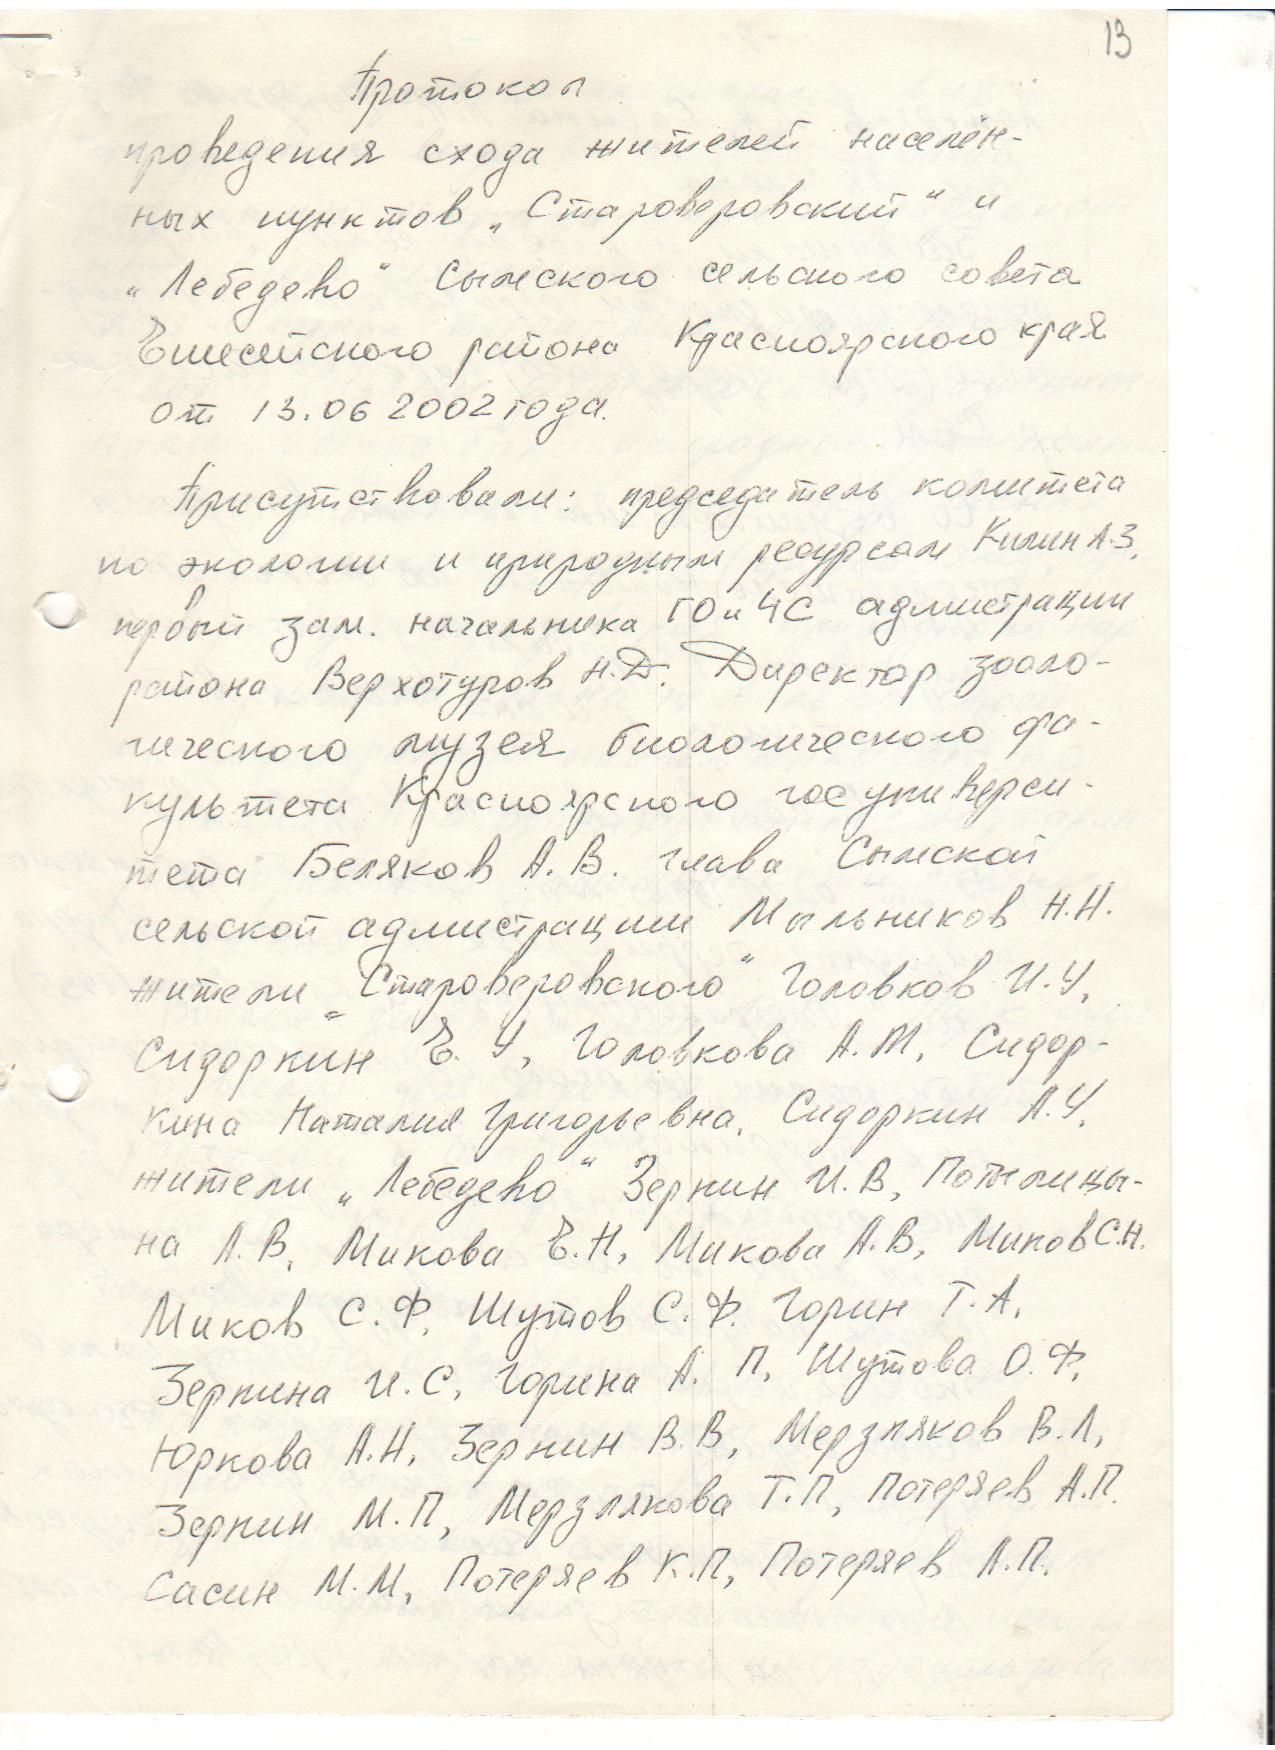 13
Протокол
проведения схода жителей населён-
ных пунктов „Староверовский" и
„Лебедево" Сымского сельского совета
Енисейского района Красноярского края
от 13.06 2002 года.
Присутствовали: председатель комитета
по экологии и природным ресурсам Килин А.З.
первый зам. начальника ГО и ЧС адмистрации
района Верхотуров Н.Д. Директор зооло-
гического музея биологического фа-
культета Красноярского госуниверси-
тета Беляков А.В. глава Сымской
сельской адмистрации Мыльников Н.Н.
жители „Староверовского" Головков И.У,
Сидоркин Е. У, Головкова А.М, Сидор-
кина Наталия Григорьевна, Сидоркин А.У,
жители „Лебедево" Зернин И.В, Потылицы-
на Л.В, Микова Е.Н, Микова А.В, Миков С.Н.
Миков С.Ф, Шутов С.Ф. Горин Т.А,
Зернина И.С, Горина А. П, Шутова О.Ф,
Юркова А.Н, Зернин В.В, Мерзляков В.Л,
Зернин М.П, Мерзлякова Т.П, Потеряев А.П.
Сасин М.М, Потеряев К.П, Потеряев Л.П.